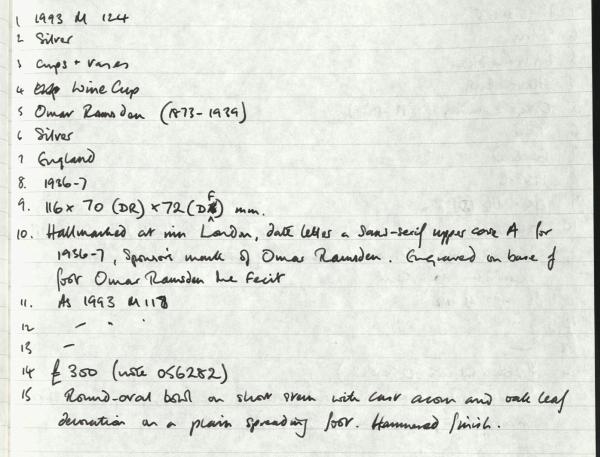 1 1993 M 124
2 Silver
3 Cups + vases
4 Wine Cup
5 Omar Ramsden (1873-1939)
6 Silver
7 England
8. 1936-7
9. 116 x 70 (DR) x 72 (DF) mm.
10. Hallmarked at London, date letter a sans-serif upper case A for
1936-7, Sponsor's mark of Omar Ramsden. Engraved on base of
foot Omar Ramsden Me Fecit
11. As 1993 M 118
12 - " "
13 -
14 £300 (note 056282)
15 Round-oval bowl on short stem with cast acorn and oak leaf
decoration on a plain spreading foot. Hammered finish.